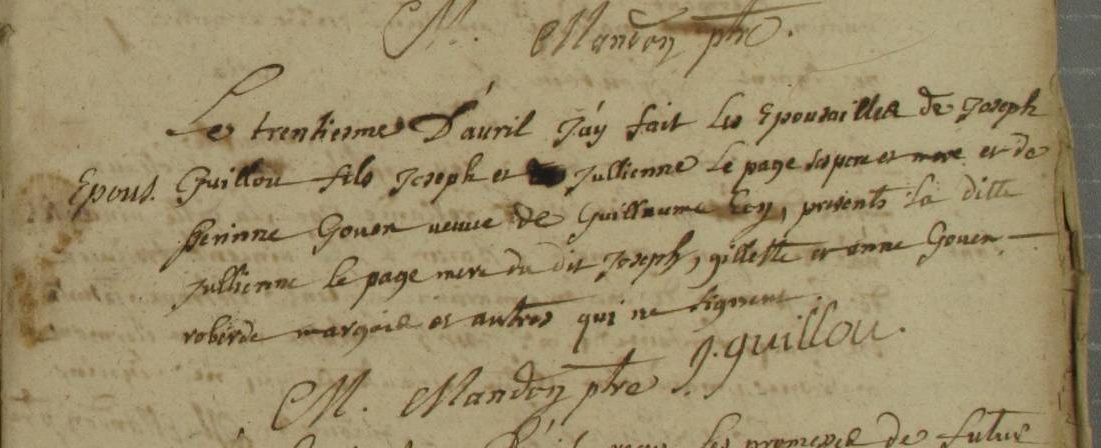 M. Mandon ptre.
Le trentiesme D'avril J'ay fait les Epousailles de Joseph
Epous. Guillou fils Joseph et Jullienne le page ses pere et mere et de
perinne Gouen veuve de Guillaume, presents la ditte
Jullienne le page mere du dit Joseph, gillette et anne Gouen
marquis et autres qui ne signent
J. guillou.
M. Mandon ptre
les promesses de futur